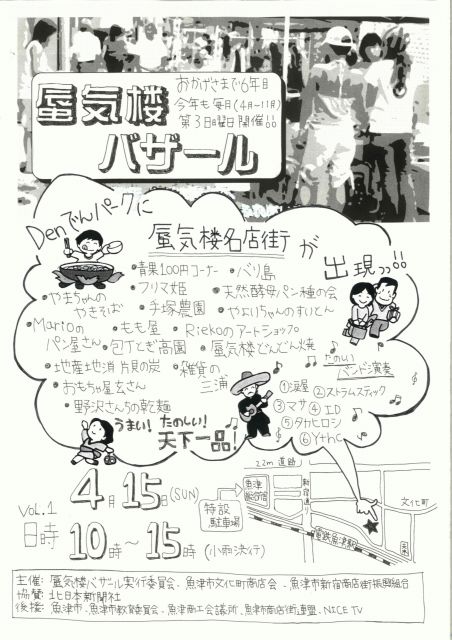 蜃気楼
バザール
おかげさまで6年目
今年も毎月(4月～11月)
第3日曜日開催!!
Denでんパークに
蜃気楼名店街が
出現っ!!
・青果100円コーナー ・バリ島
・フリマ姫 ・天然酵母パン種の会
・やまちゃんのやきそば ・手塚農園 ・やよいちゃんのすいとん
・Marioのパン屋さん ・もも屋 ・Riekoのアートショップ
・包丁とぎ高園 ・蜃気楼どんどん焼
・地産地消 片貝の炭 ・雑貨の三浦
・おもちゃ屋玄さん
・野沢さんちの乾麺
たのしいバンド演奏
①浜屋 ②ストラムスティック
③マサ ④ID
⑤タカヒロシ
うまい! たのしい!
天下一品!
Vol.1
4月15日(SUN)
日時 10時～15時(小雨決行)
22m道路
魚津総合宿
特設駐車場
新宿通り
文化町
電鉄魚津駅
主催: 蜃気楼バザール実行委員会、魚津市文化町商店会、魚津市新宿商店街振興組合
協賛: 北日本新聞社
後援: 魚津市、魚津市教育委員会、魚津商工会議所、魚津市商店街連盟、NICE TV